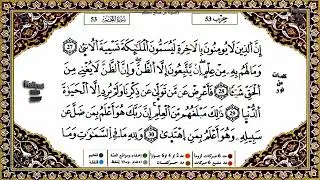 حِزْب 53
53
إِنَّ ٱلَّذِينَ لَا يُؤْمِنُونَ بِٱلْأٓخِرَةِ لَيُسَمُّونَ ٱلْمَلَٰٓئِكَةَ تَسْمِيَةَ ٱلْأُنثَىٰ 27
وَمَا لَهُم بِهِۦ مِنْ عِلْمٍ إِن يَتَّبِعُونَ إِلَّا ٱلظَّنَّ وَإِنَّ ٱلظَّنَّ لَا يُغْنِى مِنَ
ٱلْحَقِّ شَيْـًٔا 28 فَأَعْرِضْ عَن مَّن تَوَلَّىٰ عَن ذِكْرِنَا وَلَمْ يُرِدْ إِلَّا ٱلْحَيَوٰةَ
ٱلدُّنْيَا 29 ذَٰلِكَ مَبْلَغُهُم مِّنَ ٱلْعِلْمِ إِنَّ رَبَّكَ هُوَ أَعْلَمُ بِمَن ضَلَّ عَن
سَبِيلِهِۦ وَهُوَ أَعْلَمُ بِمَنِ ٱهْتَدَىٰ 30 وَلِلَّهِ مَا فِى ٱلسَّمَٰوَٰتِ وَمَا